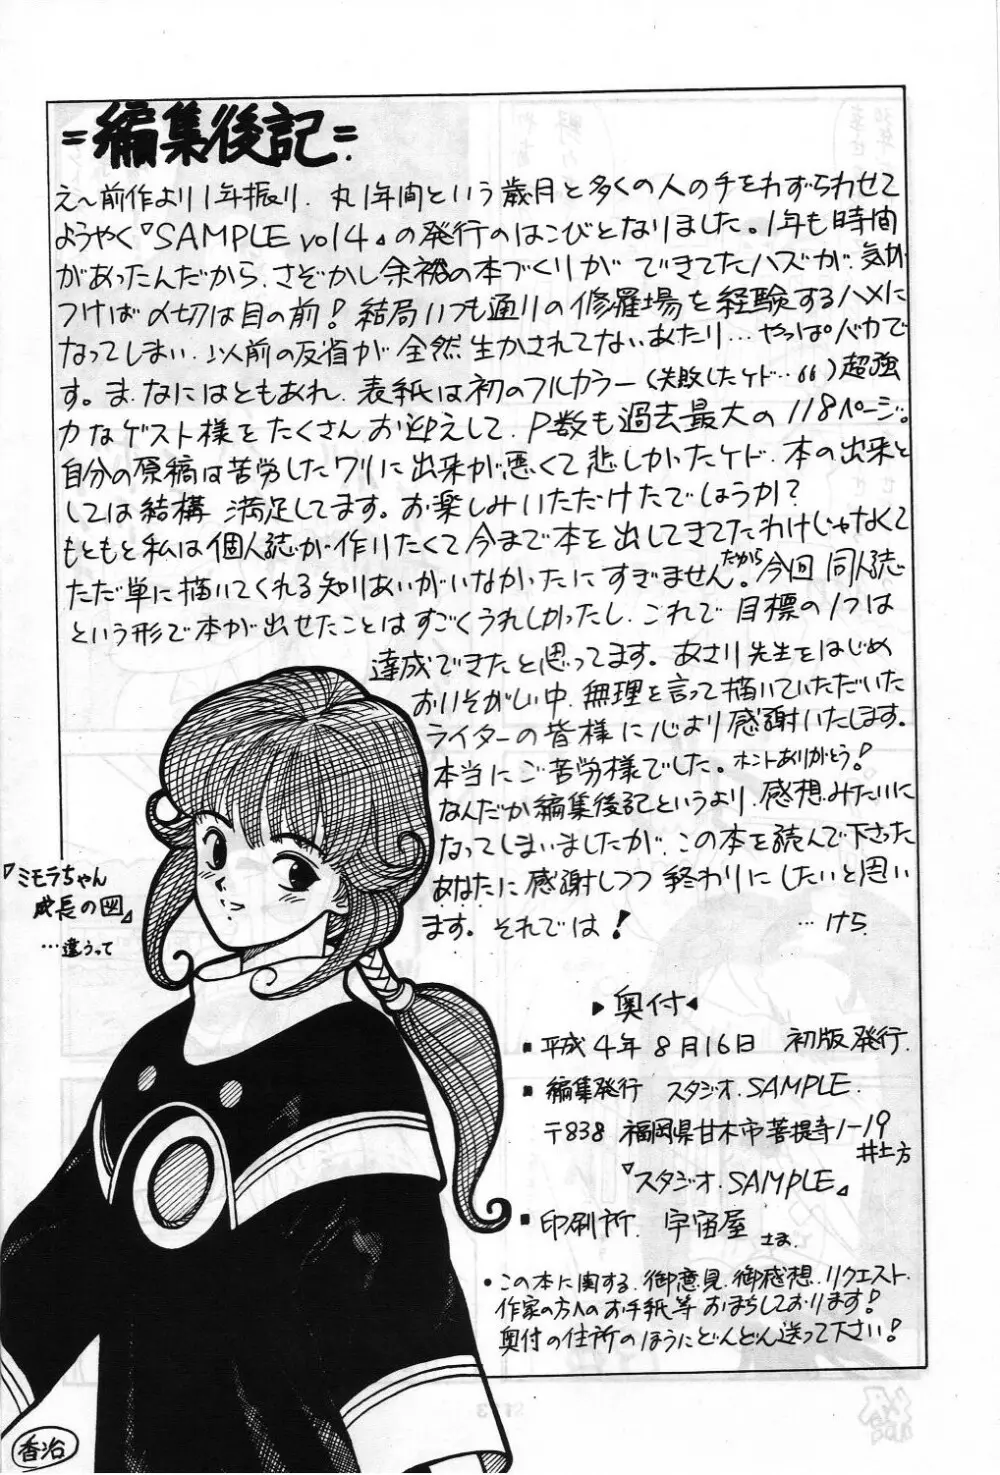 =編集後記=
え～前作より1年振り、丸1年間という歳月と多くの人の手をわずらわせて
ようやく『SAMPLE vol4』の発行のはこびとなりました。1年も時間
があったんだから、さぞかし余裕の本づくりができてたハズが、気が
つけば〆切は目の前!結局いつも通りの修羅場を経験するハメに
なってしまい、以前の反省が全然生かされてないあたり…やっぱバカで
す。ま、なにはともあれ、表紙は初のフルカラー(失敗したケド…66)超強
力なゲスト様をたくさんお迎えして、P数も過去最大の118ページ。
自分の原稿は苦労したワリに出来が悪くて悲しかったケド、本の出来と
しては結構満足してます。お楽しみいただけたでしょうか?
もともと私は個人誌が作りたくて今まで本を出してきてたわけじゃなくて
ただ単に描いてくれる知りあいがいなかったにすぎません。だから今回同人誌
という形で本が出せたことはすごくうれしかったし、これで目標の1つは
達成できたと思ってます。あさり先生をはじめ
おいそがしい中、無理を言って描いていただいた
ライターの皆様に心より感謝いたします。
本当にご苦労様でした。ホントありがとう!
なんだか編集後記というより、感想みたいに
なってしまいましたが、この本を読んで下さった
あなたに感謝しつつ終わりにしたいと思い
ます。それでは!
…けら
『ミモラちゃん
成長の図』
…違うって
▶奥付◀
■平成4年8月16日 初版発行.
■編集発行 スタジオ.SAMPLE.
〒838 福岡県甘木市菩提寺1-19
井土方
『スタジオ.SAMPLE』
■印刷所. 宇宙屋さま.
・この本に関する、御意見、御感想、リクエスト、
作家の方へのお手紙等おまちしております!
奥付の住所のほうにどんどん送って下さい!
香治